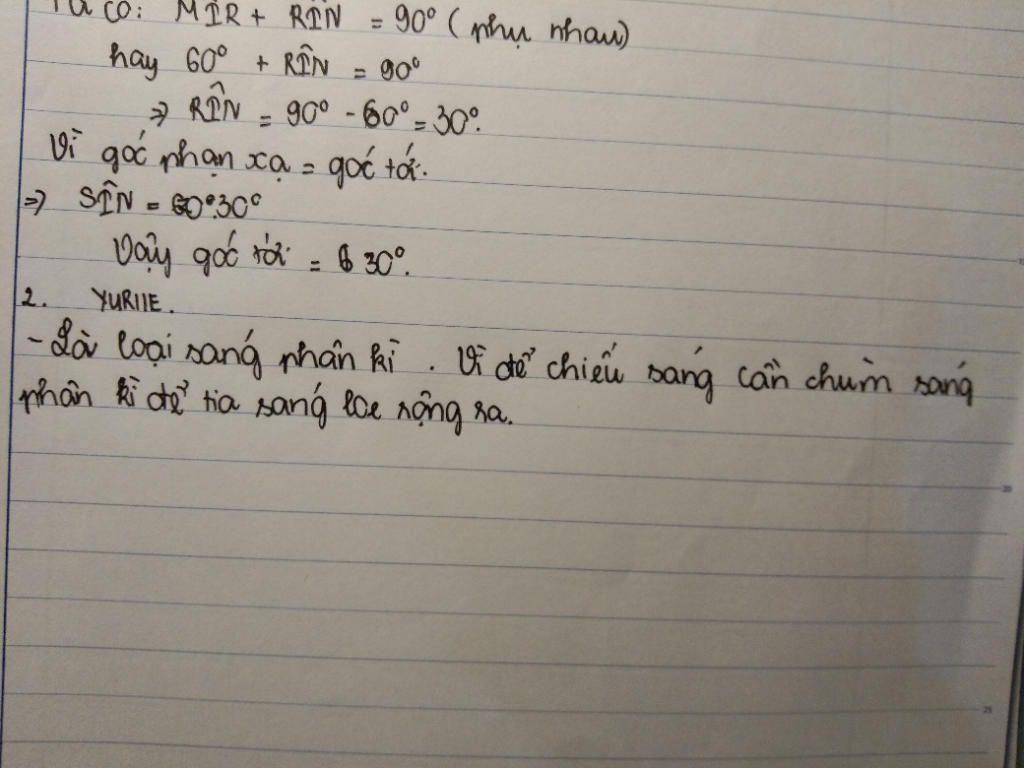 Ta có: MÎR + RÎN = 90° (phụ nhau)
hay 60° + RÎN = 90°
=> RÎN = 90° - 60° = 30°.
Vì góc phản xạ = góc tới.
=> SÎN = 30°
Vậy góc tới = 30°.
2. YURIIE.
- Là loại sáng phân kì. Vì để chiếu sáng cần chùm sáng
phân kì để tia sáng loe rộng ra.
20
25